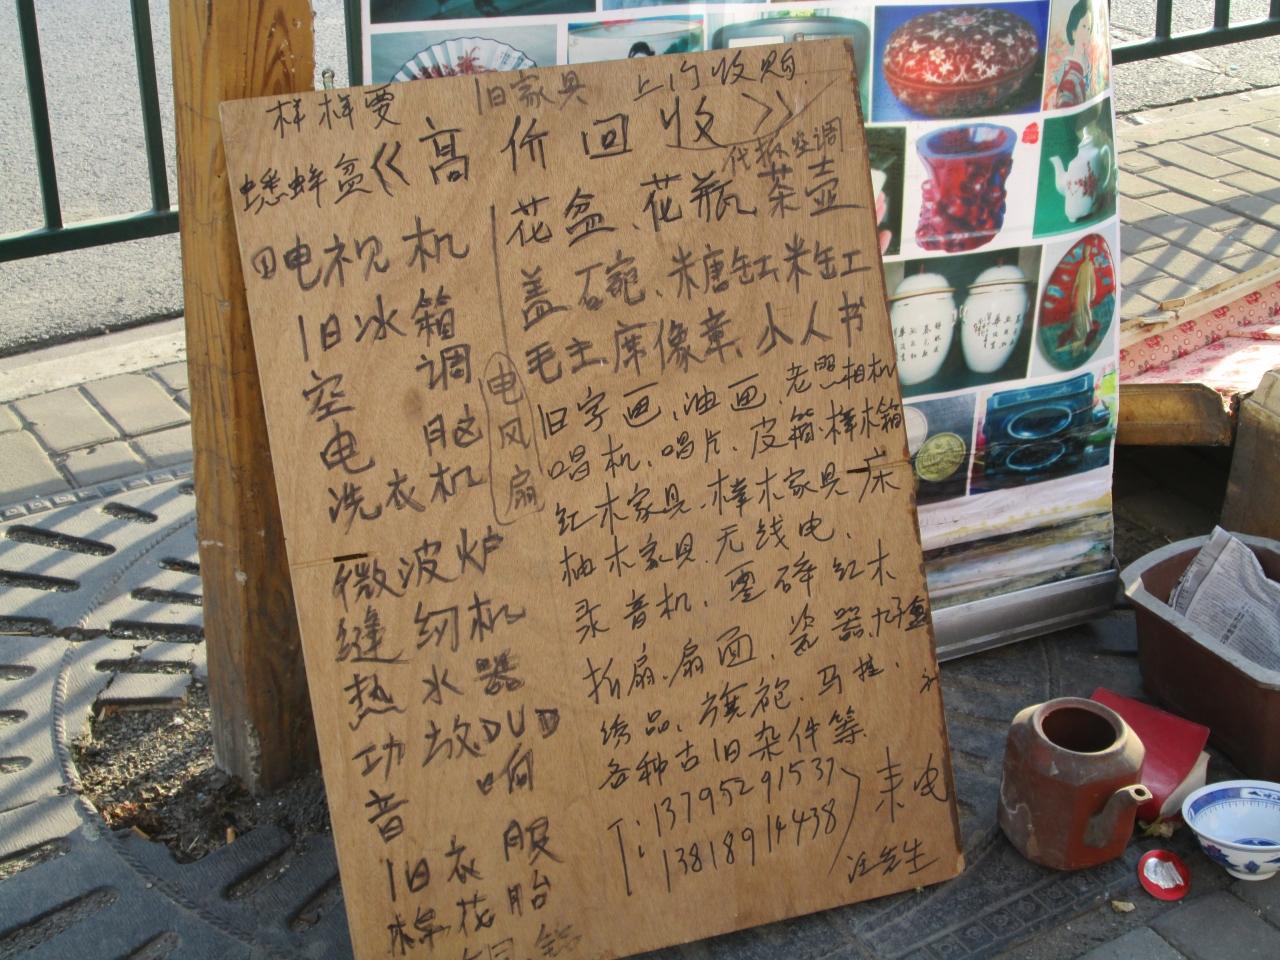 样样要 旧家具 上门收购
蟋蟀盆《高价回收》
代拆空调
①电视机
旧冰箱
空调
电脑
洗衣机
电风扇
微波炉
缝纫机
热水器
功放DVD
音响
旧衣服
棉花胎
花盆、花瓶、茶壶
盖碗、糖缸、米缸
毛主席像章、小人书
旧字画、油画、老照相机
唱机、唱片、皮箱、樟木箱
红木家具、榉木家具床
柚木家具、无线电、
录音机、零碎红木
折扇、扇面、瓷器
绣品、旗袍、马挂、
各种古旧杂件等
T:13795291537
13818914438
来电
汪先生